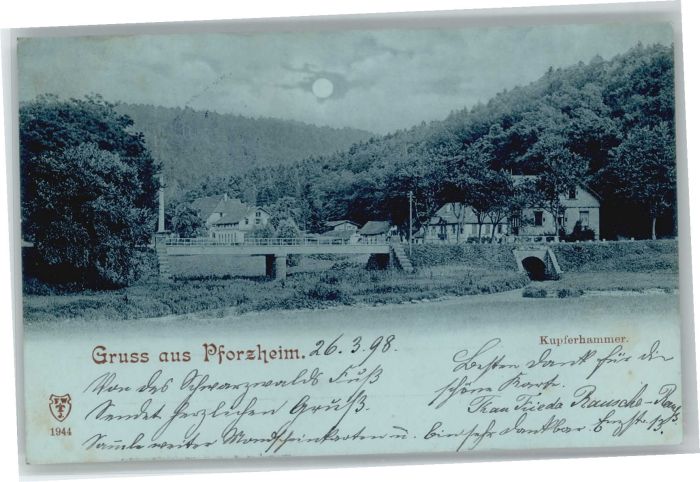 Kupferhammer.
Gruss aus Pforzheim. 26.3.98.
Von des Schwarzwalds Fuß
Sendet herzlichen Gruß.
Sammle weiter Mondscheinkarten u. bin sehr dankbar.
Besten Dank für die
schöne Karte.
Frau Frieda Rausche-
1944